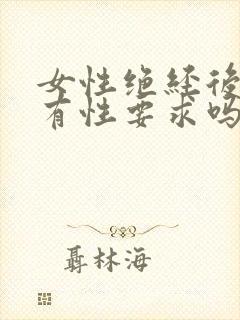 女性绝经後
有性要求吗
聶林海